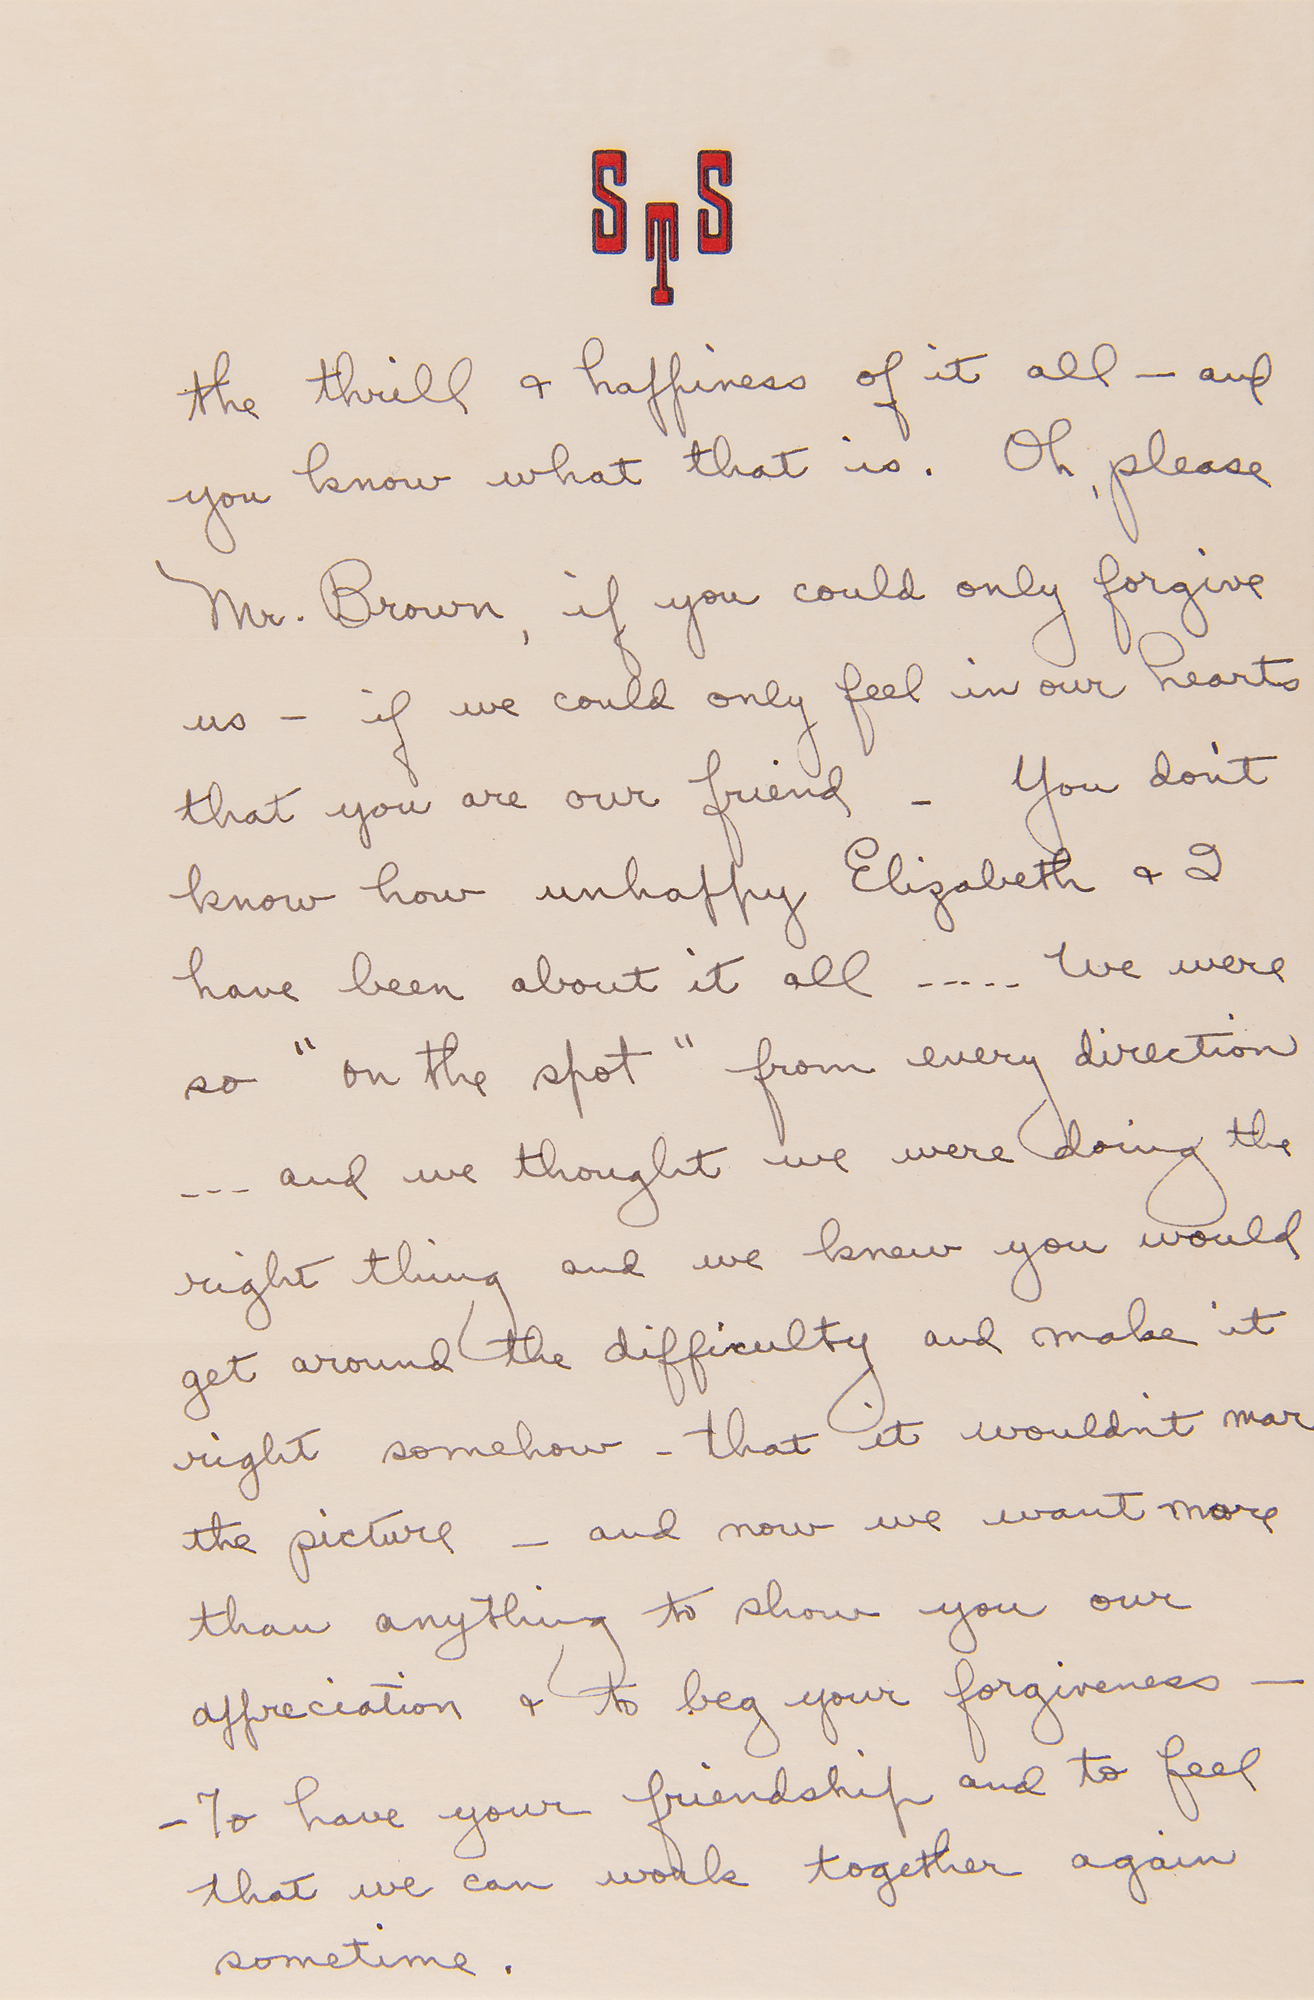 STS
the thrill & happiness of it all — and
you know what that is. Oh, please
Mr. Brown, if you could only forgive
us – if we could only feel in our hearts
that you are our friend – You don't
know how unhappy Elizabeth & I
have been about it all ----- We were
so "on the spot" from every direction
--- and we thought we were doing the
right thing and we knew you would
get around the difficulty and make it
right somehow - that it wouldn't mar
the picture – and now we want more
than anything to show you our
appreciation & to beg your forgiveness —
– To have your friendship and to feel
that we can work together again
sometime.